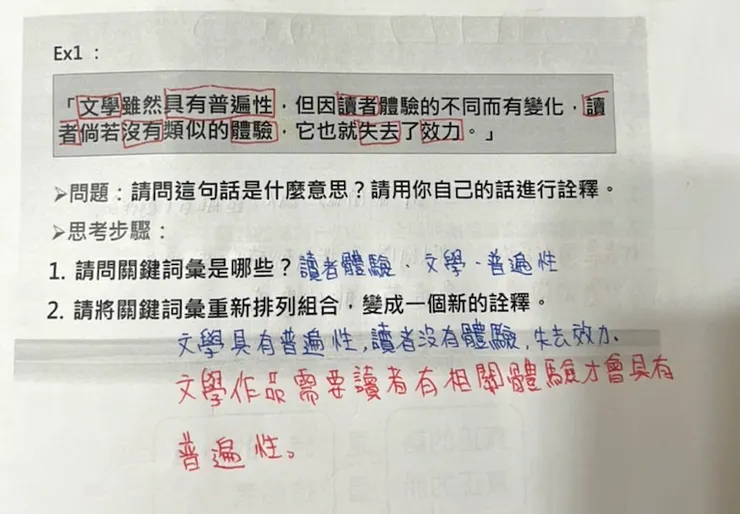 Ex1：
「文學雖然具有普遍性，但因讀者體驗的不同而有變化，讀
者倘若沒有類似的體驗，它也就失去了效力。」
➢問題：請問這句話是什麼意思？請用你自己的話進行詮釋。
➢思考步驟：
1. 請問關鍵詞彙是哪些？讀者體驗、文學、普遍性
2. 請將關鍵詞彙重新排列組合，變成一個新的詮釋。
文學具有普遍性，讀者沒有體驗，失去效力.
文學作品需要讀者有相關體驗才會具有
普遍性。